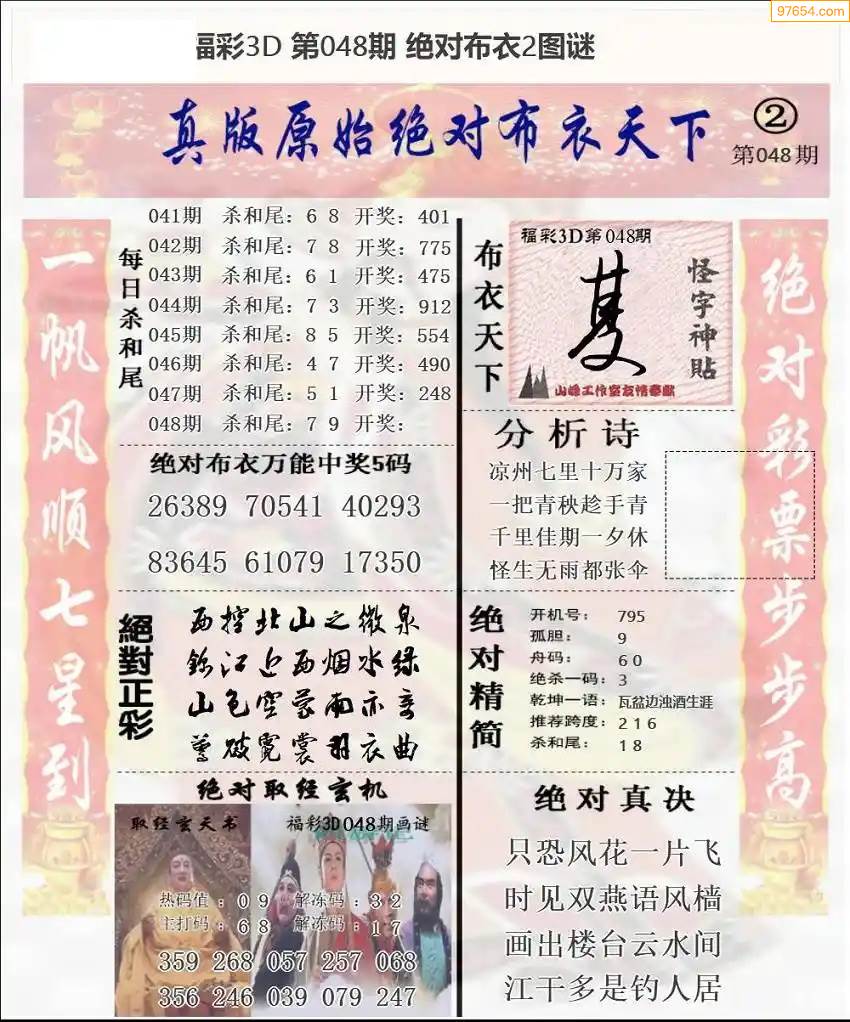 97654.com
福彩3D 第048期 绝对布衣2图谜
真版原始绝对布衣天下
②
第048期
一帆风顺七星到
每日杀和尾
041期 杀和尾：6 8 开奖：401
042期 杀和尾：7 8 开奖：775
043期 杀和尾：6 1 开奖：475
044期 杀和尾：7 3 开奖：912
045期 杀和尾：8 5 开奖：554
046期 杀和尾：4 7 开奖：490
047期 杀和尾：5 1 开奖：248
048期 杀和尾：7 9 开奖：
绝对布衣万能中奖5码
26389 70541 40293
83645 61079 17350
絕對正彩
西控北山之微泉
锦江近西烟水绿
山色空蒙雨亦奇
惊破霓裳羽衣曲
绝对取经玄机
取经玄天书
福彩3D048期画谜
热码值：0 9 解冻码：3 2
主打码：6 8 解冻码：1 7
359 268 057 257 068
356 246 039 079 247
布衣天下
福彩3D第048期
怪字神贴
山峰工作室友情奉献
分析诗
凉州七里十万家
一把青秧趁手青
千里佳期一夕休
怪生无雨都张伞
绝对精简
开机号： 795
孤胆： 9
舟码： 6 0
绝杀一码：3
乾坤一语：瓦盆边浊酒生涯
推荐跨度：2 1 6
杀和尾： 1 8
绝对真决
只恐风花一片飞
时见双燕语风樯
画出楼台云水间
江干多是钓人居
绝对彩票步步高